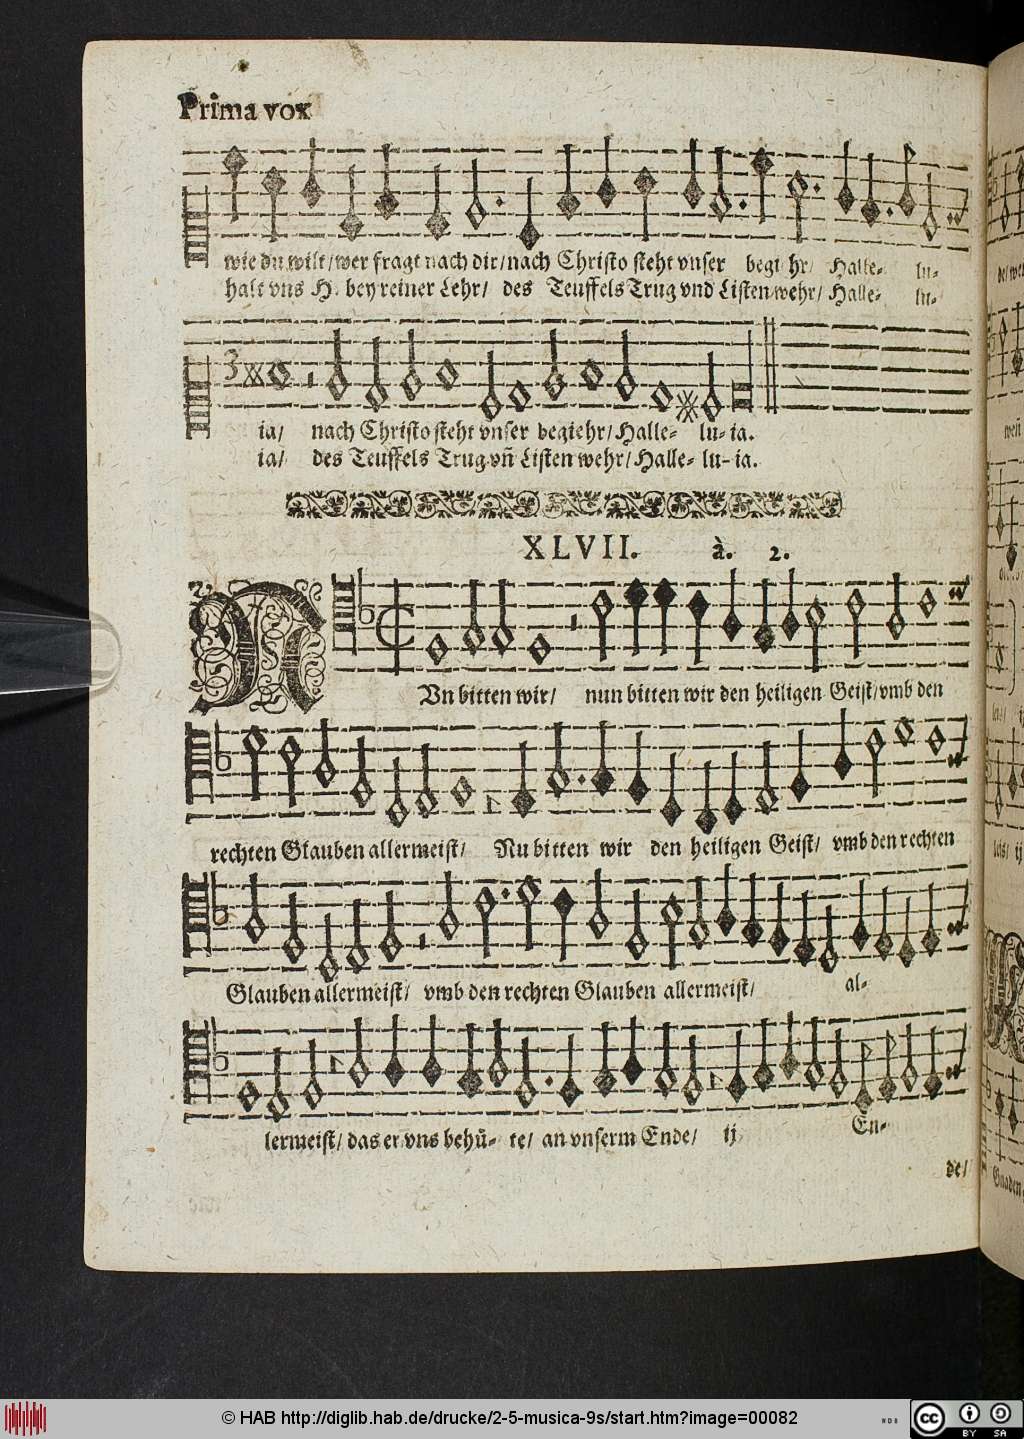 Prima vox
wie du wilt/wer fragt nach dir/nach Christo steht vnser begi hr/ Halle- lu-
halt vns H. bey reiner Lehr/ des Teuffels Trug vnd Listen wehr/ Halle- lu-
3
ia/ nach Christo steht vnser begiehr/Halle- lu- ia.
ia/ des Teuffels Trug vñ Listen wehr/Halle- lu- ia.
XLVII. à. 2.
N
Vn bitten wir/ nun bitten wir den heiligen Geist/vmb den
rechten Glauben allermeist/ Nu bitten wir den heiligen Geist/ vmb den rechten
Glauben allermeist/ vmb den rechten Glauben allermeist/ al-
lermeist/ das er vns behü- te/ an vnserm Ende/ ij En-
de/
© HAB http://diglib.hab.de/drucke/2-5-musica-9s/start.htm?image=00082
cc BY SA